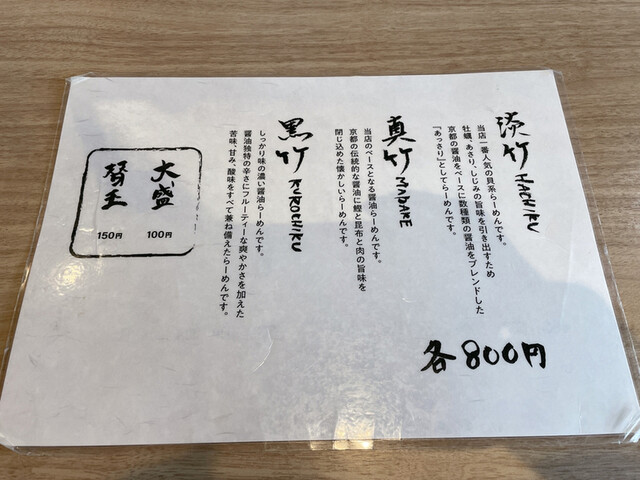 淡竹 HACHIKU
当店一番人気の貝系らーめんです。
牡蠣、あさり、しじみの旨味を引き出すため
京都の醤油をベースに数種類の醤油をブレンドした
「あっさり」としてらーめんです。
真竹 MADAKE
当店のベースとなる醤油らーめんです。
京都の伝統的な醤油に鰹と昆布と肉の旨味を
閉じ込めた懐かしいらーめんです。
黒竹 KUROCHIKU
しっかり味の濃い醤油らーめんです。
醤油独特の辛さにフルーティーな爽やかさを加えた
苦味、甘み、酸味をすべて兼ね備えたらーめんです。
各800円
大盛 100円
替玉 150円